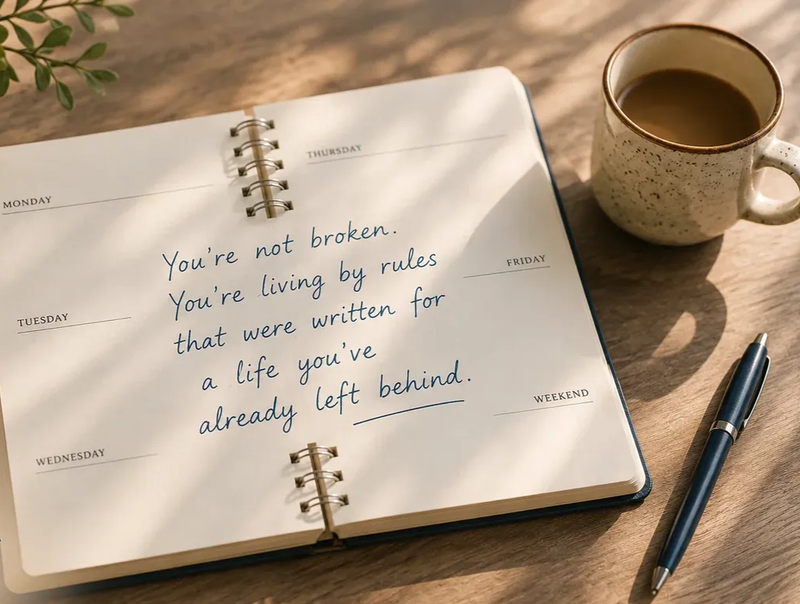 MONDAY
THURSDAY
You're not broken.
You're living by rules
that were written for
a life you've
already left behind.
TUESDAY
FRIDAY
WEDNESDAY
WEEKEND